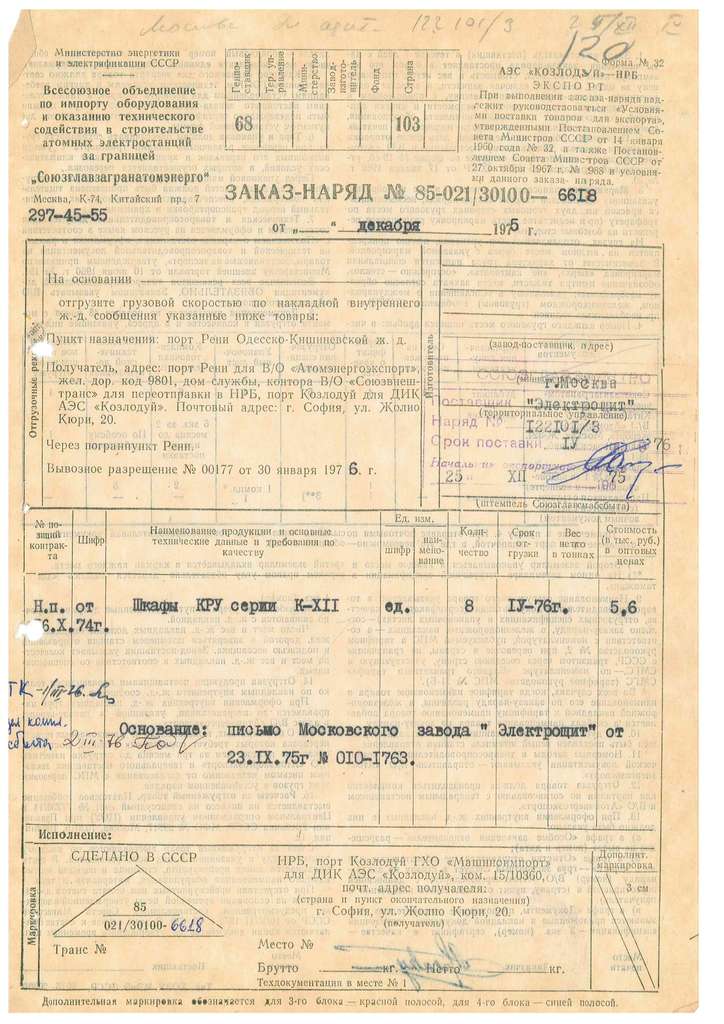 122 101/3
120
Форма № 32
Министерство энергетики
и электрификации СССР
Всесоюзное объединение
по импорту оборудования
и оказанию технического
содействия в строительстве
атомных электростанций
за границей
„Союзглавзагранатомэнерго“
Москва, К-74, Китайский пр. 7
297-45-55
Генпоставщик
Тер. управление
Министерство
Завод-изготовитель
Фонд
Страна
68 103
АЭС «КОЗЛОДУЙ»—НРБ
ЭКСПОРТ
При выполнении заказа-наряда надлежит руководствоваться «Условиями поставки товаров для экспорта», утвержденными Постановлением Совета Министров СССР от 14 января 1960 года № 32, а также Постановлением Совета Министров СССР от 27 октября 1967 г. № 988 и условиями данного заказа-наряда.
ЗАКАЗ-НАРЯД № 85-021/30100— 6618
от „ “ декабря 1975 г.
Отгрузочные
На основании
отгрузите грузовой скоростью по накладной внутреннего
ж.-д. сообщения указанные ниже товары:
Пункт назначения: порт Рени Одесско-Кишиневской ж. д.
Получатель, адрес: порт Рени для В/О «Атомэнергоэкспорт»,
жел. дор. код 9801, дом службы, контора В/О «Союзвнештранс» для переотправки в НРБ, порт Козлодуй для ДИК
АЭС «Козлодуй». Почтовый адрес: г. София, ул. Жолио
Кюри, 20.
Через погранпункт Рени.
Вывозное разрешение № 00177 от 30 января 1976 г.
Изготовитель
(завод-поставщик, адрес)
г.Москва
Поставщик "Электрощит"
(территориальное управление)
Наряд № I22I0I/3
Срок поставки IУ 76
25 XII 75
(штемпель Союзглавснабсбыта)
№ позиций контракта
Шифр
Наименование продукции и основные технические данные и требования по качеству
Ед. изм.
шифр
наименование
Количество
Срок отгрузки
Вес нетто в тоннах
Стоимость (в тыс. руб.) в оптовых ценах
Н.п. от Шкафы КРУ серии К-XII ед. 8 IУ-76г. 5,6
6.X.74г.
2 III 76
Основание: письмо Московского завода " Электрощит" от
23.IX.75г № 0I0-I763.
Исполнение:
Маркировка
СДЕЛАНО В СССР
85
021/30100- 6618
Транс №
НРБ, порт Козлодуй ГХО «Машиноимпорт»
для ДИК АЭС «Козлодуй», ком. 15/10360,
почт. адрес получателя:
(страна и пункт окончательного назначения)
г. София, ул. Жолио Кюри, 20.
(получатель)
Место №
Брутто кг. Нетто кг.
Техдокументация в месте № 1
Дополнит. маркировка
3 см
Дополнительная маркировка обозначается для 3-го блока—красной полосой, для 4-го блока—синей полосой.